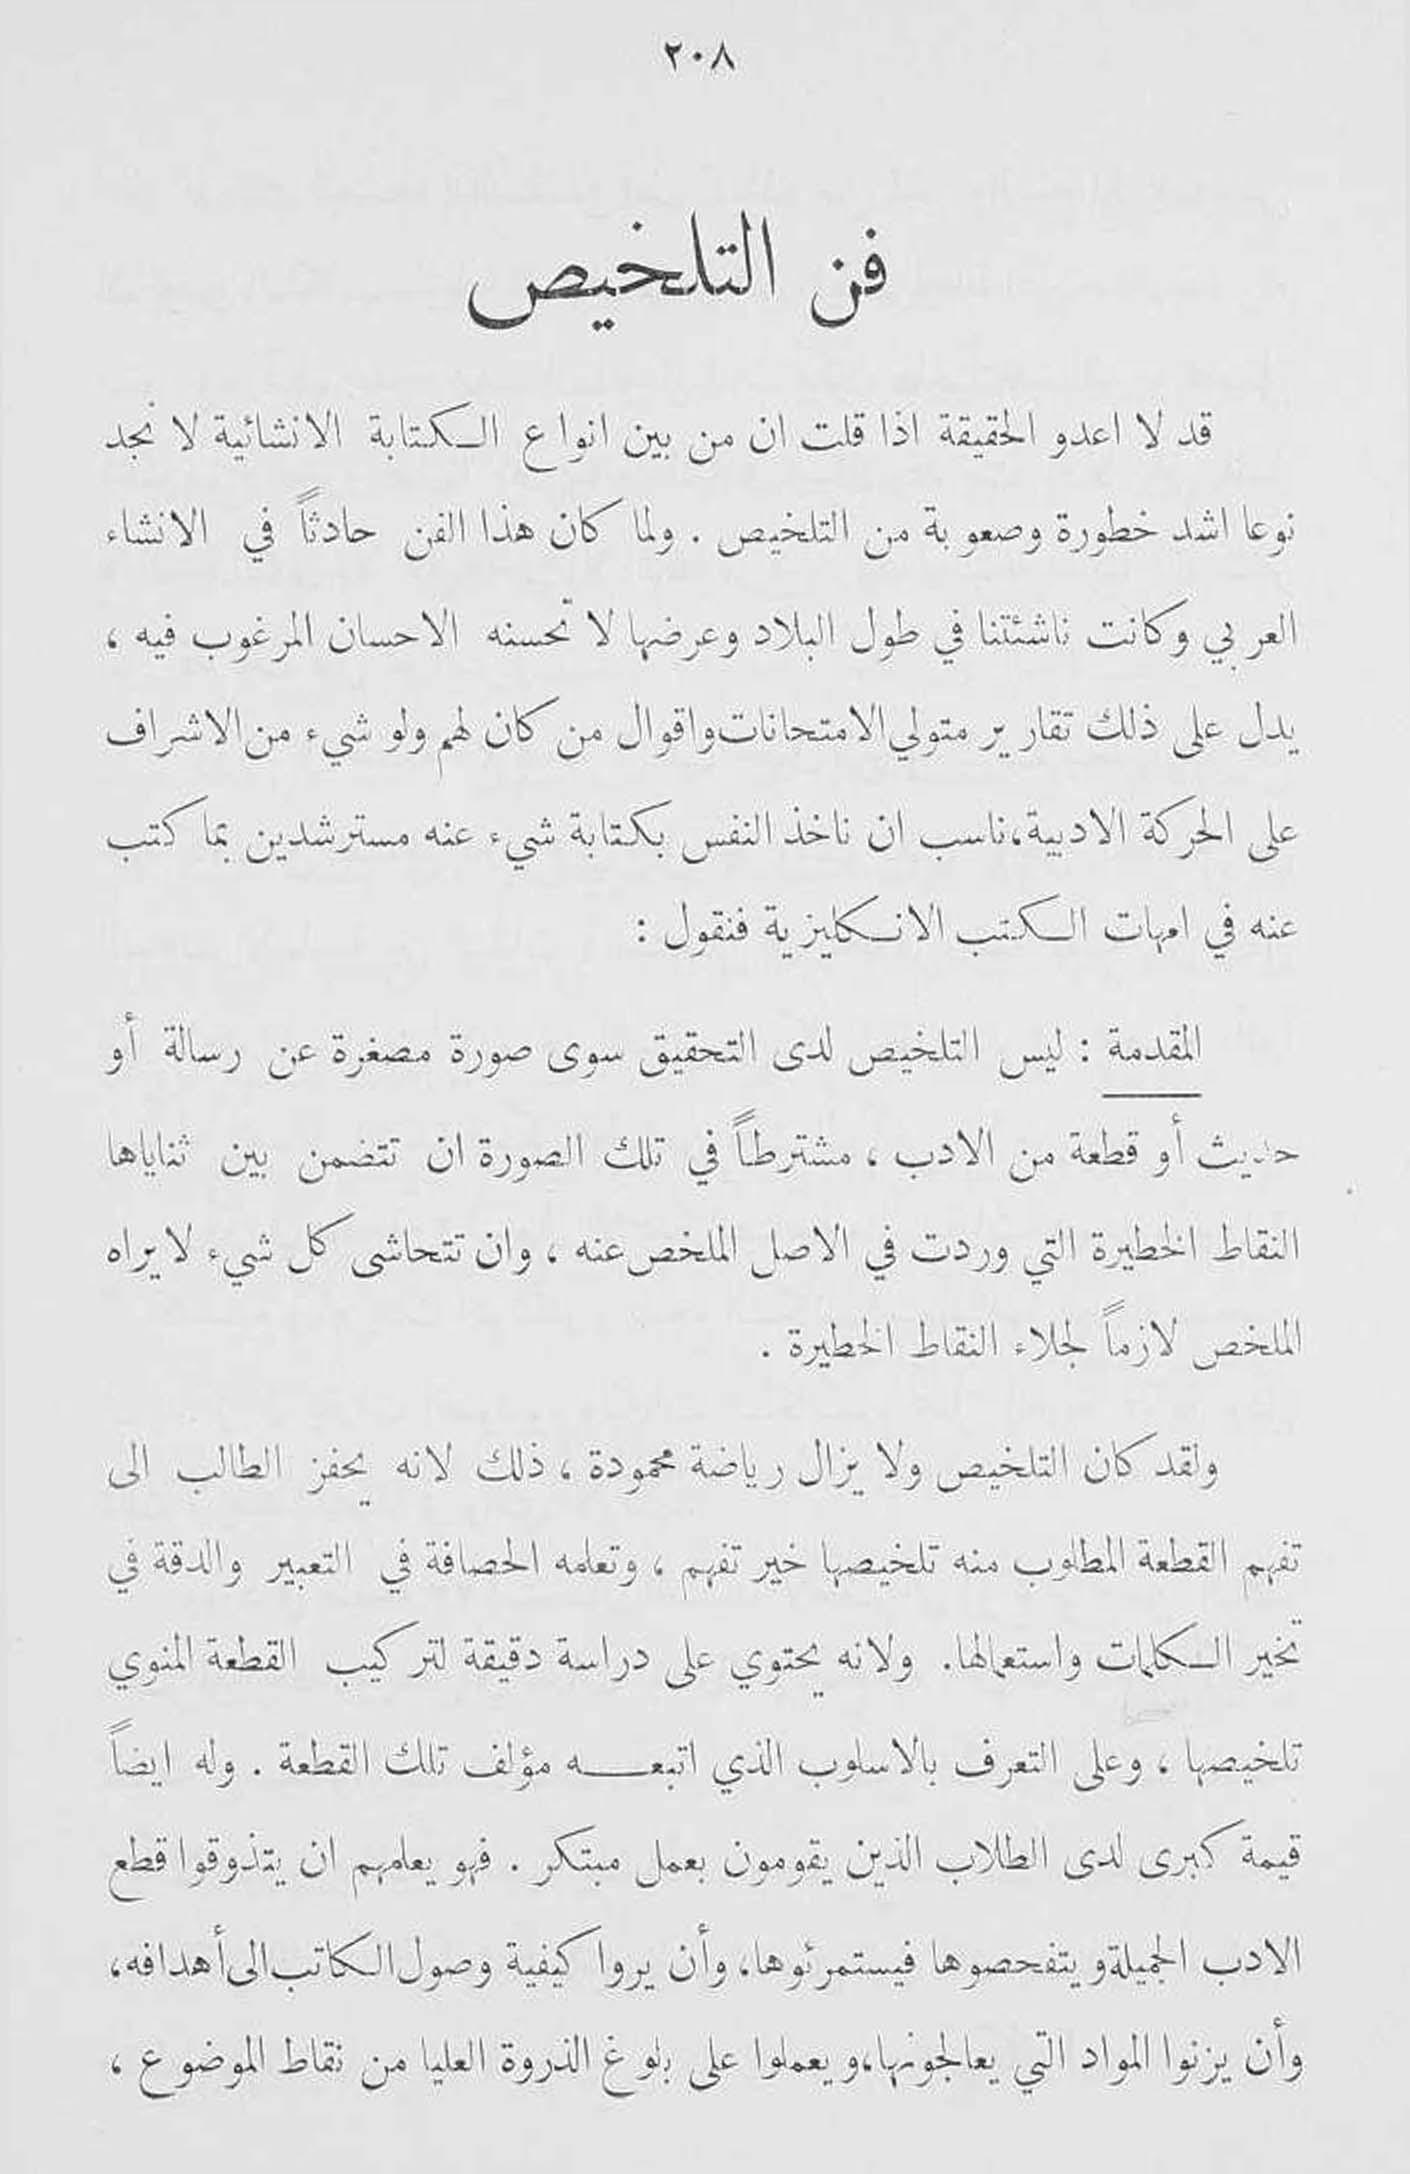 ٢٠٨
فن التلخيص
قد لا اعدو الحقيقة اذا قلت ان من بين انواع الكتابة الانشائية لا نجد
نوعا اشد خطورة وصعوبة من التلخيص . ولما كان هذا الفن حادثاً في الانشاء
العربي وكانت ناشئتنا في طول البلاد وعرضها لا تحسنه الاحسان المرغوب فيه ،
يدل على ذلك تقارير متولي الامتحانات واقوال من كان لهم ولو شيء من الاشراف
على الحركة الادبية، ناسب ان ناخذ النفس بكتابة شيء عنه مسترشدين بما كتب
عنه في امهات الكتب الانكليزية فنقول :
المقدمة : ليس التلخيص لدى التحقيق سوى صورة مصغرة عن رسالة أو
حديث أو قطعة من الادب ، مشترطاً في تلك الصورة ان تتضمن بين ثناياها
النقاط الخطيرة التي وردت في الاصل الملخص عنه ، وان تتحاشى كل شيء لا يراه
الملخص لازماً لجلاء النقاط الخطيرة .
ولقد كان التلخيص ولا يزال رياضة محمودة ، ذلك لانه يحفز الطالب الى
تفهم القطعة المطلوب منه تلخيصها خير تفهم ، وتعلمه الحصافة في التعبير والدقة في
تخير الكلمات واستعمالها. ولانه يحتوي على دراسة دقيقة لتركيب القطعة المنوي
تلخيصها ، وعلى التعرف بالاسلوب الذي اتبعـــه مؤلف تلك القطعة . وله ايضاً
قيمة كبرى لدى الطلاب الذين يقومون بعمل مبتكر . فهو يعلمهم ان يتذوقوا قطع
الادب الجميلة ويتفحصوها فيستمرئوها، وأن يروا كيفية وصول الكاتب الى أهدافه،
وأن يزنوا المواد التي يعالجونها، ويعملوا على بلوغ الذروة العليا من نقاط الموضوع ،